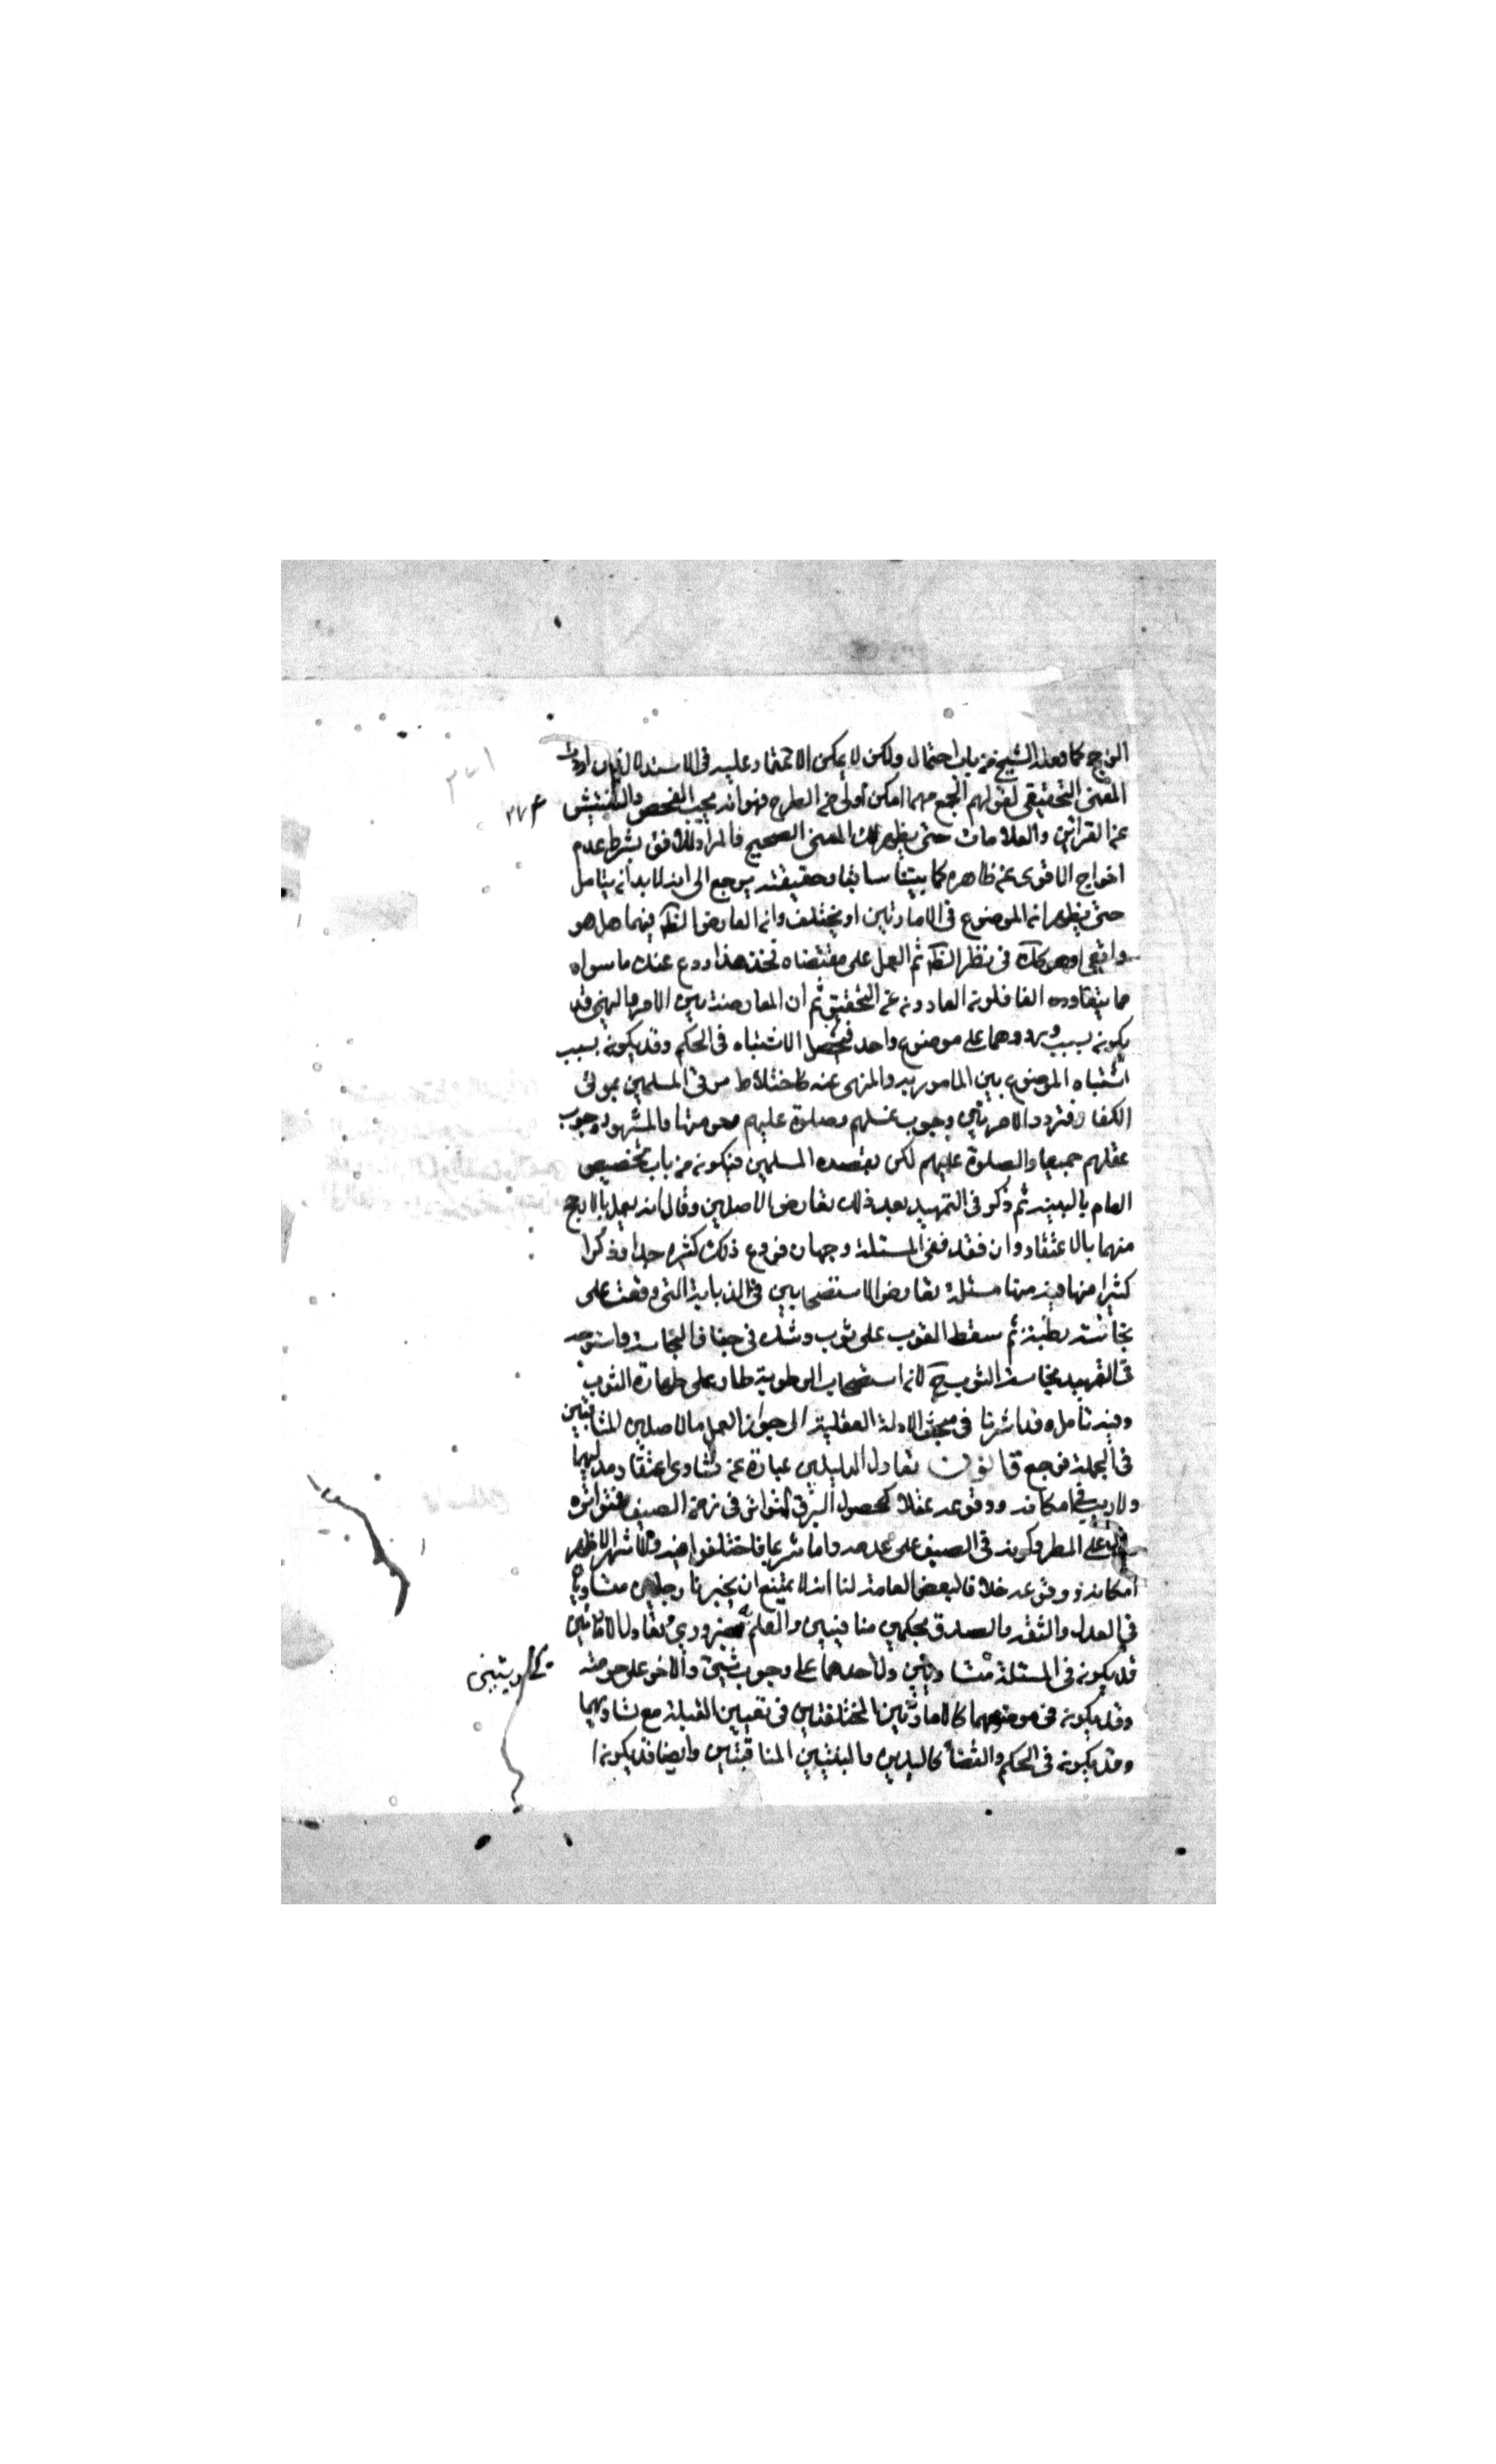 الوجه كما فعله الشيخ من باب احتمال ولكن لا يمكن الاعتماد عليه في الاستدلال
المعنى التحقيقي لقولهم الجمع مهما امكن اولى من الطرح فهو انه يجب الفحص والتفتيش
عن القراين والعلامات حتى يظهر لك المعنى الصحيح فالمراد بشرط عدم
اخراج الاقوى عن ظاهره كما بيننا سابقا وحقيقته يرجع الى انه لا بد ان يتامل
حتى يظهر ان الموضوع في الامارتين او يختلف وان العارض الظ فيهما هل هو
واقعي او هو كك في نظر الظ ثم العمل على مقتضاه فخذ هذا ودع عنك ما سواه
مما يتفاوه الغافلون العادون عن التحقيق ثم ان المعارضة بين الامر والنهي قد
يكون بسبب ورودهما على موضوع واحد فيحصل الاشتباه في الحكم وقد يكون بسبب
اشتباه الموضوع بين المامور به والمنهى عنه كاختلاط موتى المسلمين بموتى
الكفار فتردد الامر بين وجوب غسلهم وصلوة عليهم وحرمتها والمشهور وجوب
غسلهم جميعا والصلوة عليهم لكن بقصد المسلمين فيكون من باب تخصيص
العام بالنية ثم ذكر في التمهيد بعد ذلك تعارض الاصلين وقال انه يعمل بالارجح
منهما بالاعتقاد وان فقد ففي المسئلة وجهان فروع ذلك كثيرة جدا وذكر
كثيرا منها فيه منها مسئلة تعارض الاستصحابين في الذبابة التي وقعت على
نجاسة رطبة ثم سقط القرب على ثوب وشك في جفاف النجاسة واستوجه
في التمهيد نجاسة الثوب ح لان استصحاب الرطوبة طار على طهارة الثوب
وفيه تامل وقد اشرنا في مبحث الادلة العقلية الى جواز العمل بالاصلين المتنافيين
في الجملة فراجع قانون تعادل الدليلين عبارة عن تساوى اعتقاد مدليهما
ولا ريب في امكانه ووقوعه عقلا كحصول البرق المتواتر في زمن الصيف
على المطر وكونه في الصيف على عدمه واما شرعا فاختلفوا فيه والاشهر الاظهر
امكانه ووقوعه خلافا لبعض العامة لنا انه لا يمتنع ان يخبرنا رجلان متساويان
في العدالة والثقة والصدق بحكمين متنافيين والعلم به ضروري وتعادل الامارتين
قد يكون في المسئلة متساويتين دل احدهما على وجوب شيئ والاخر على حرمته
وقد يكون في موضوعهما كالامارتين المختلفتين في تعيين القبلة مع تساويهما
وقد يكون في الحكم والقضا كاليدين والبينتين المتنافيتين وايضا قد يكون
٢٧٤